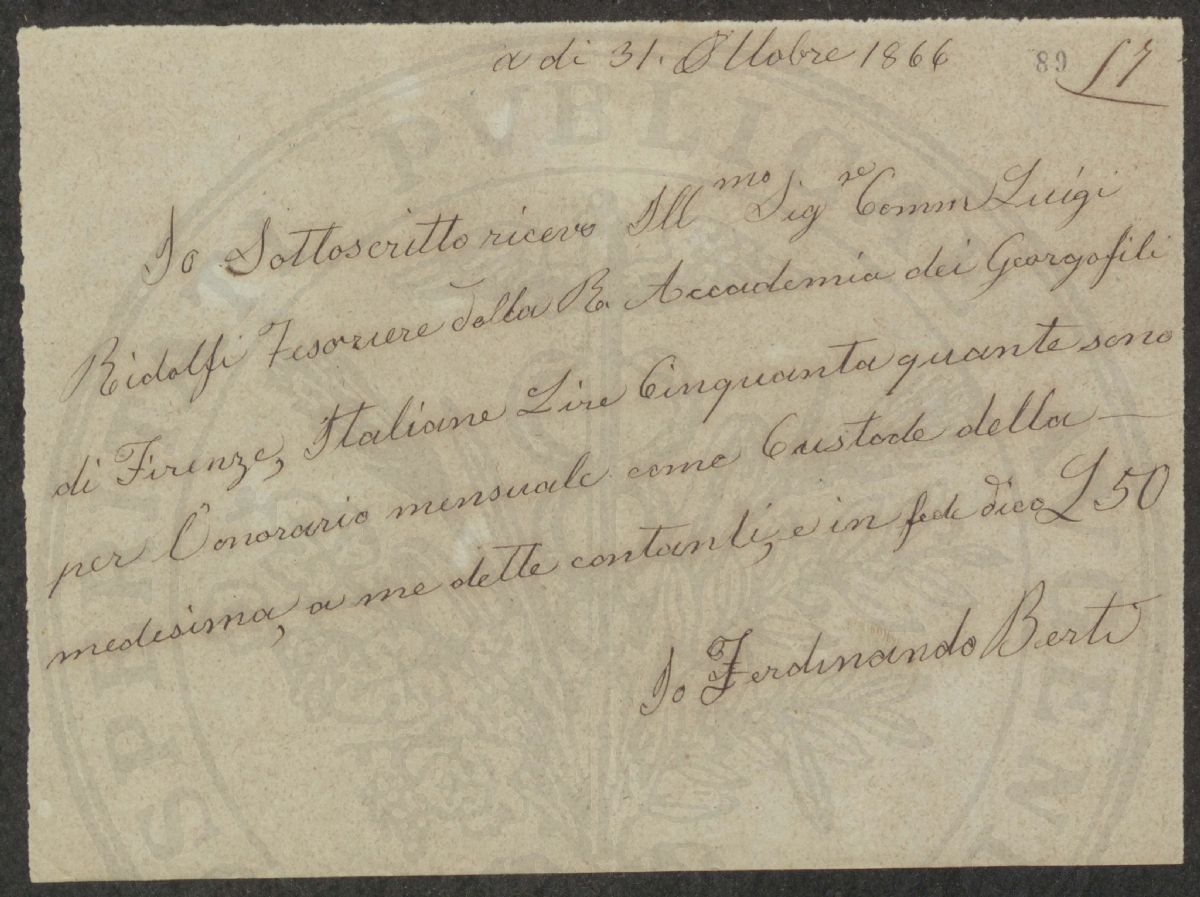 a di 31. Ottobre 1866 89 17
Io Sottoscritto ricevo Ill.mo Sig.re Comm Luigi
Ridolfi Tesoriere della R. Accademia dei Georgofili
di Firenze, Italiane Lire Cinquanta quante sono
per l'onorario mensuale come Custode della —
medesima, a me dette contanti, e in fede dico L 50
Io Ferdinando Berti